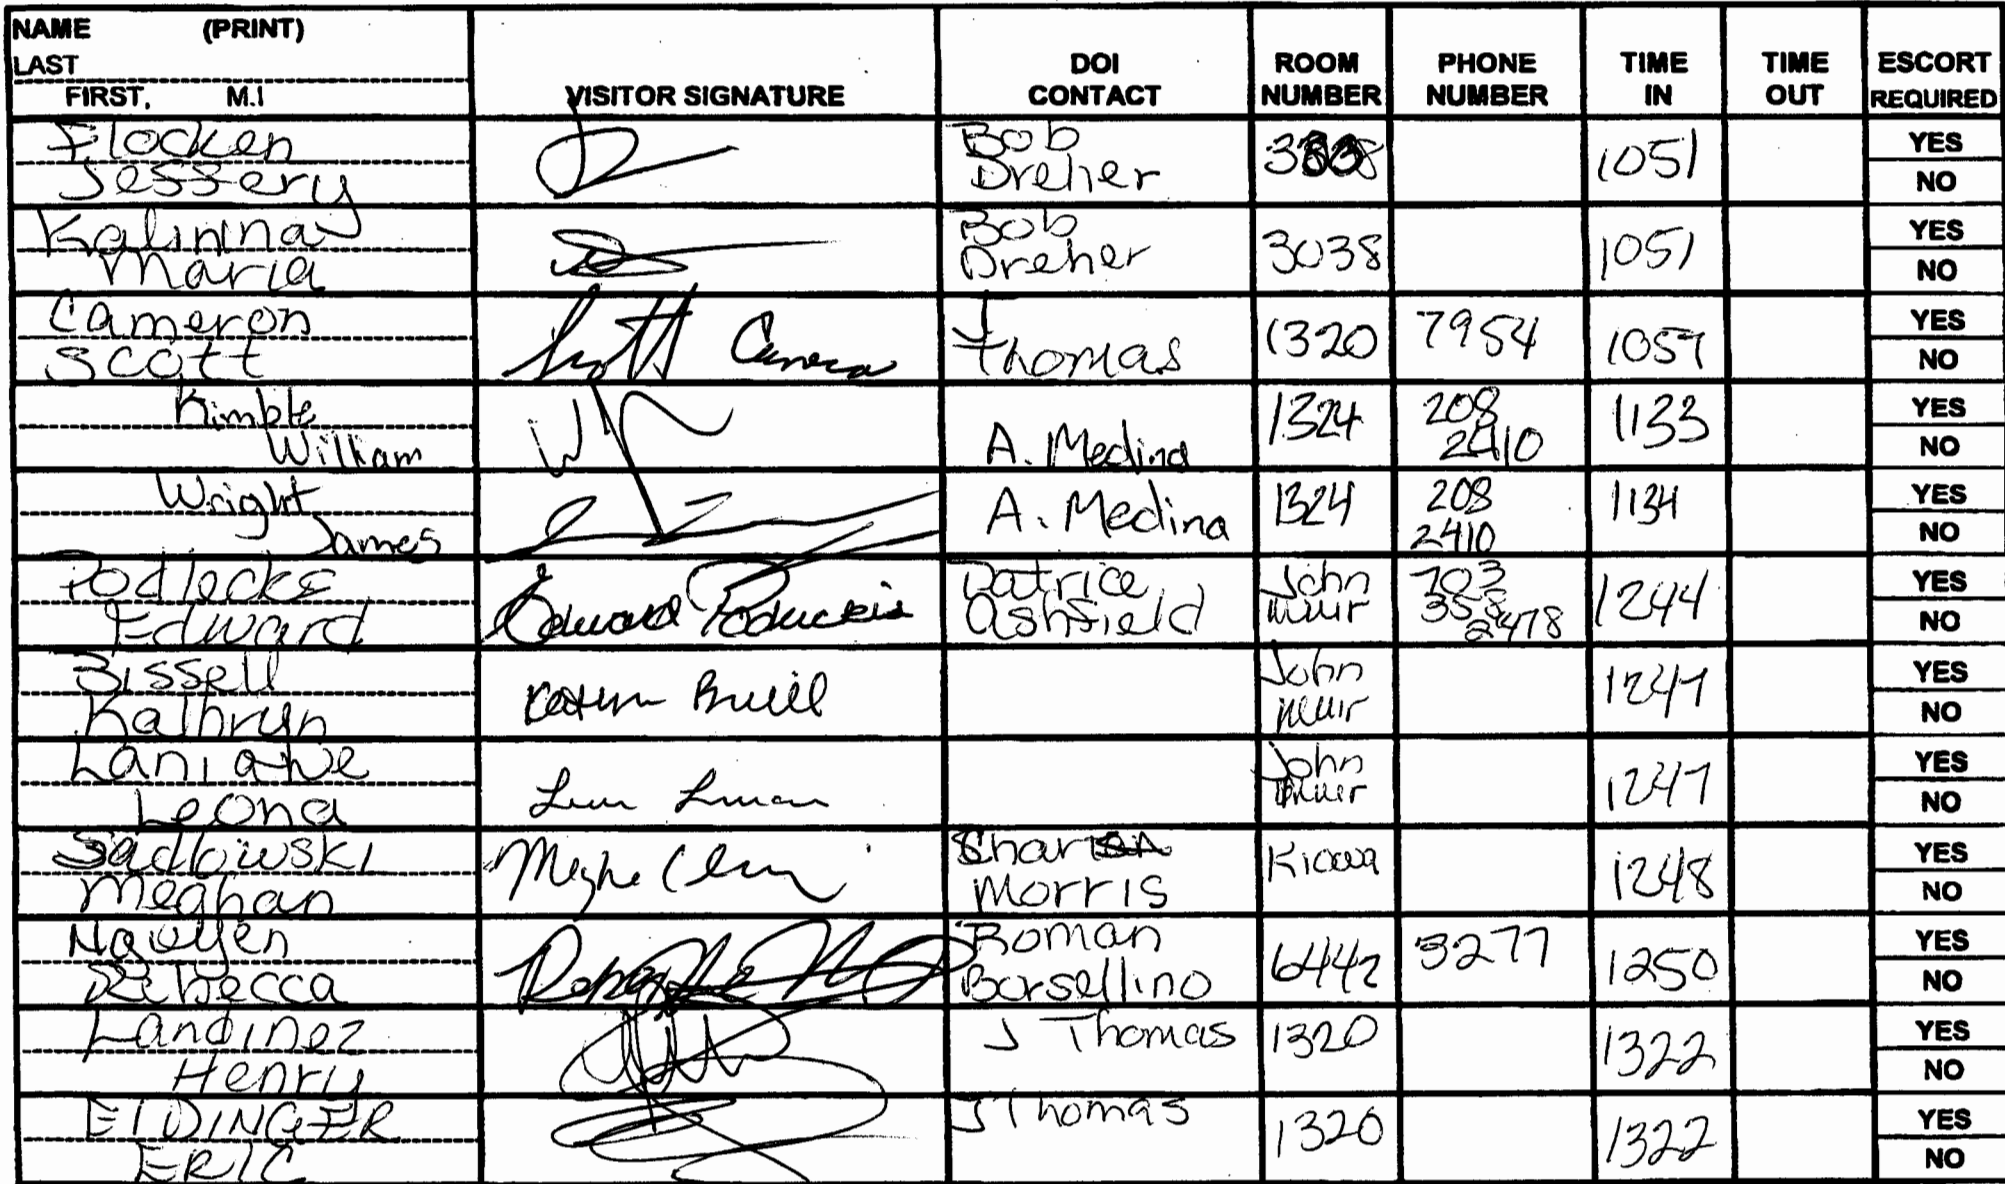 NAME (PRINT)
LAST
FIRST, M.I
VISITOR SIGNATURE
DOI
CONTACT
ROOM
NUMBER
PHONE
NUMBER
TIME
IN
TIME
OUT
ESCORT
REQUIRED
Flocken
Jeffery
Bob
Dreher
1051
YES
NO
Kalinina
Maria
Bob
Dreher
3038
1051
YES
NO
Cameron
Scott
Scott Cameron
J
Thomas
1320
7954
1057
YES
NO
Kimble
William
A. Medina
1324
208
2410
1133
YES
NO
Wright
James
A. Medina
1324
208
2410
1134
YES
NO
Edward
Edward
Patrice
Ashfield
John
Muir
703
358
2478
1244
YES
NO
Bissell
Kathryn
John
Muir
1247
YES
NO
Leona
John
Muir
1247
YES
NO
Sadlowski
Meghan
Morris
Kiowa
1248
YES
NO
Nguyen
Rebecca
Roman
Borsellino
6442
3277
1250
YES
NO
Landinez
Henry
J Thomas
1320
1322
YES
NO
EIDINGER
ERIC
J Thomas
1320
1322
YES
NO